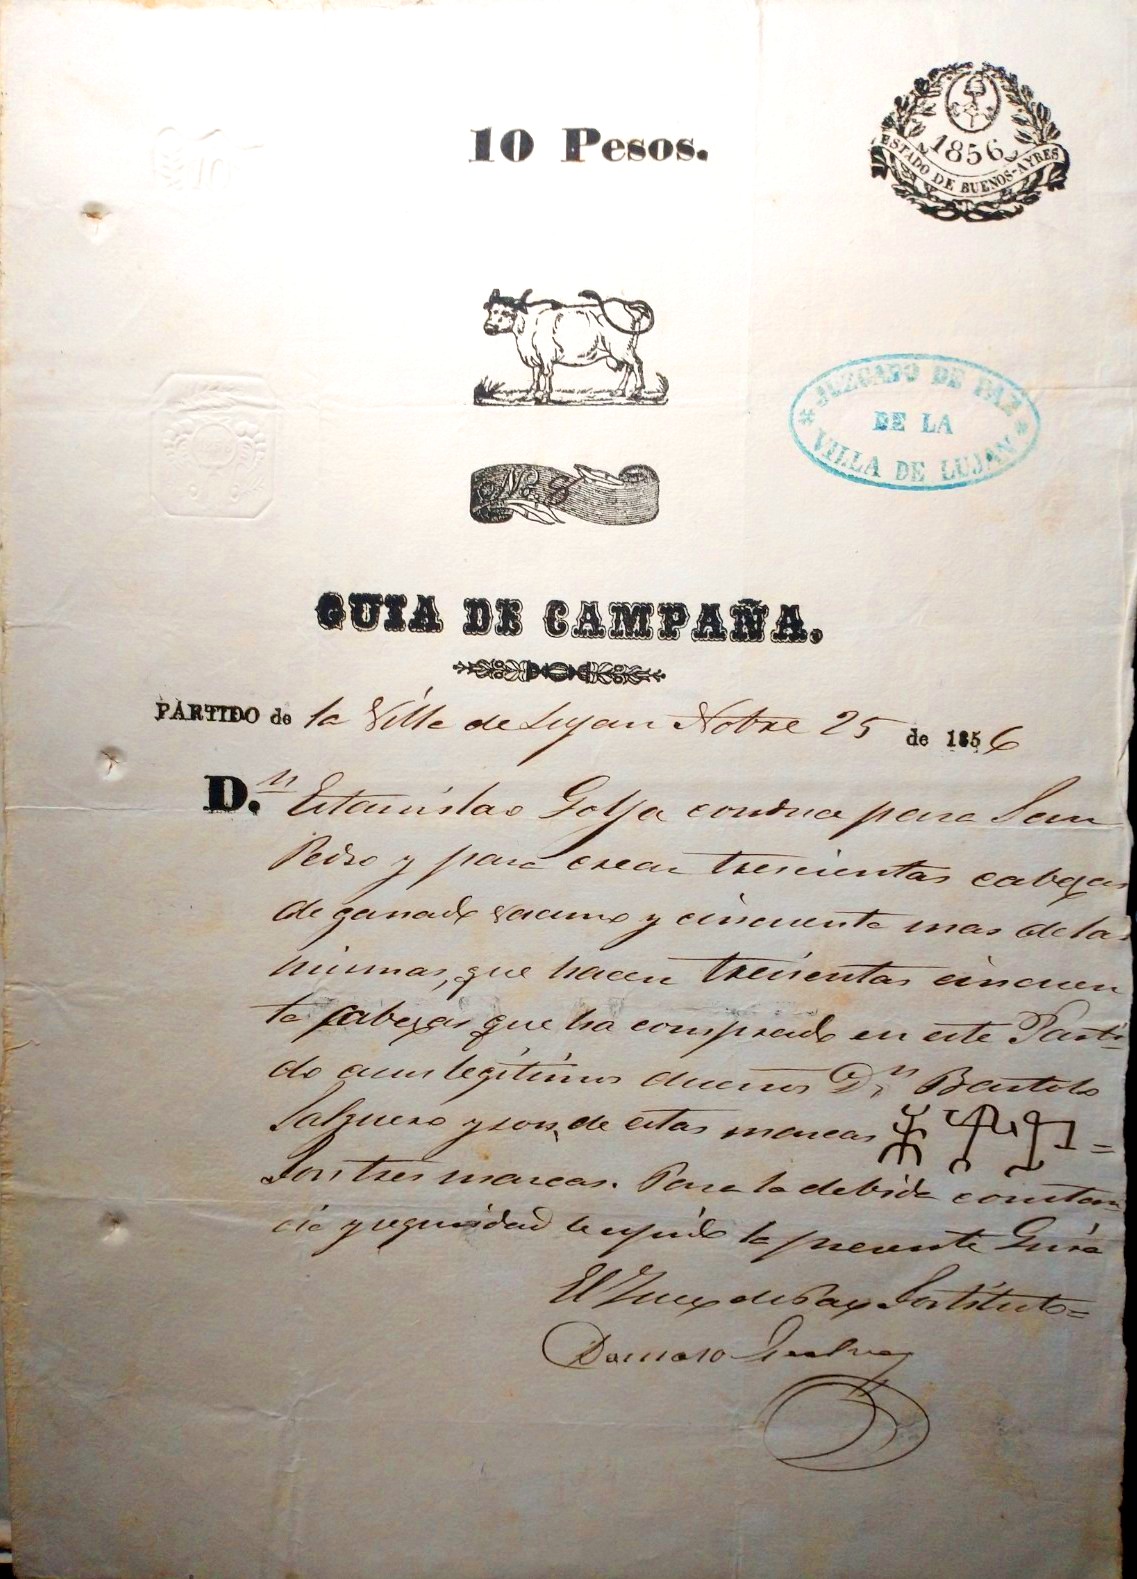 10 Pesos.
1856
ESTADO DE BUENOS-AYRES
JUZGADO DE PAZ
DE LA
VILLA DE LUJAN
No. 8
GUIA DE CAMPAÑA.
PARTIDO de la Villa de Lujan Nobre 25 de 1856
D.n Estanislao conduce para San
Pedro y para crear trescientas cabezas
de ganado vacuno y cincuenta mas de las
mismas, que hacen trescientas cincuen
ta cabezas que ha comprado en este Parti-
do a sus legitimos dueños Dn Bartolo
Salguero y son de estas marcas =
Son tres marcas. Para la debida constan
cia y seguridad le espido la presente Guia
El Juez de Paz Sostituto=
Damaso